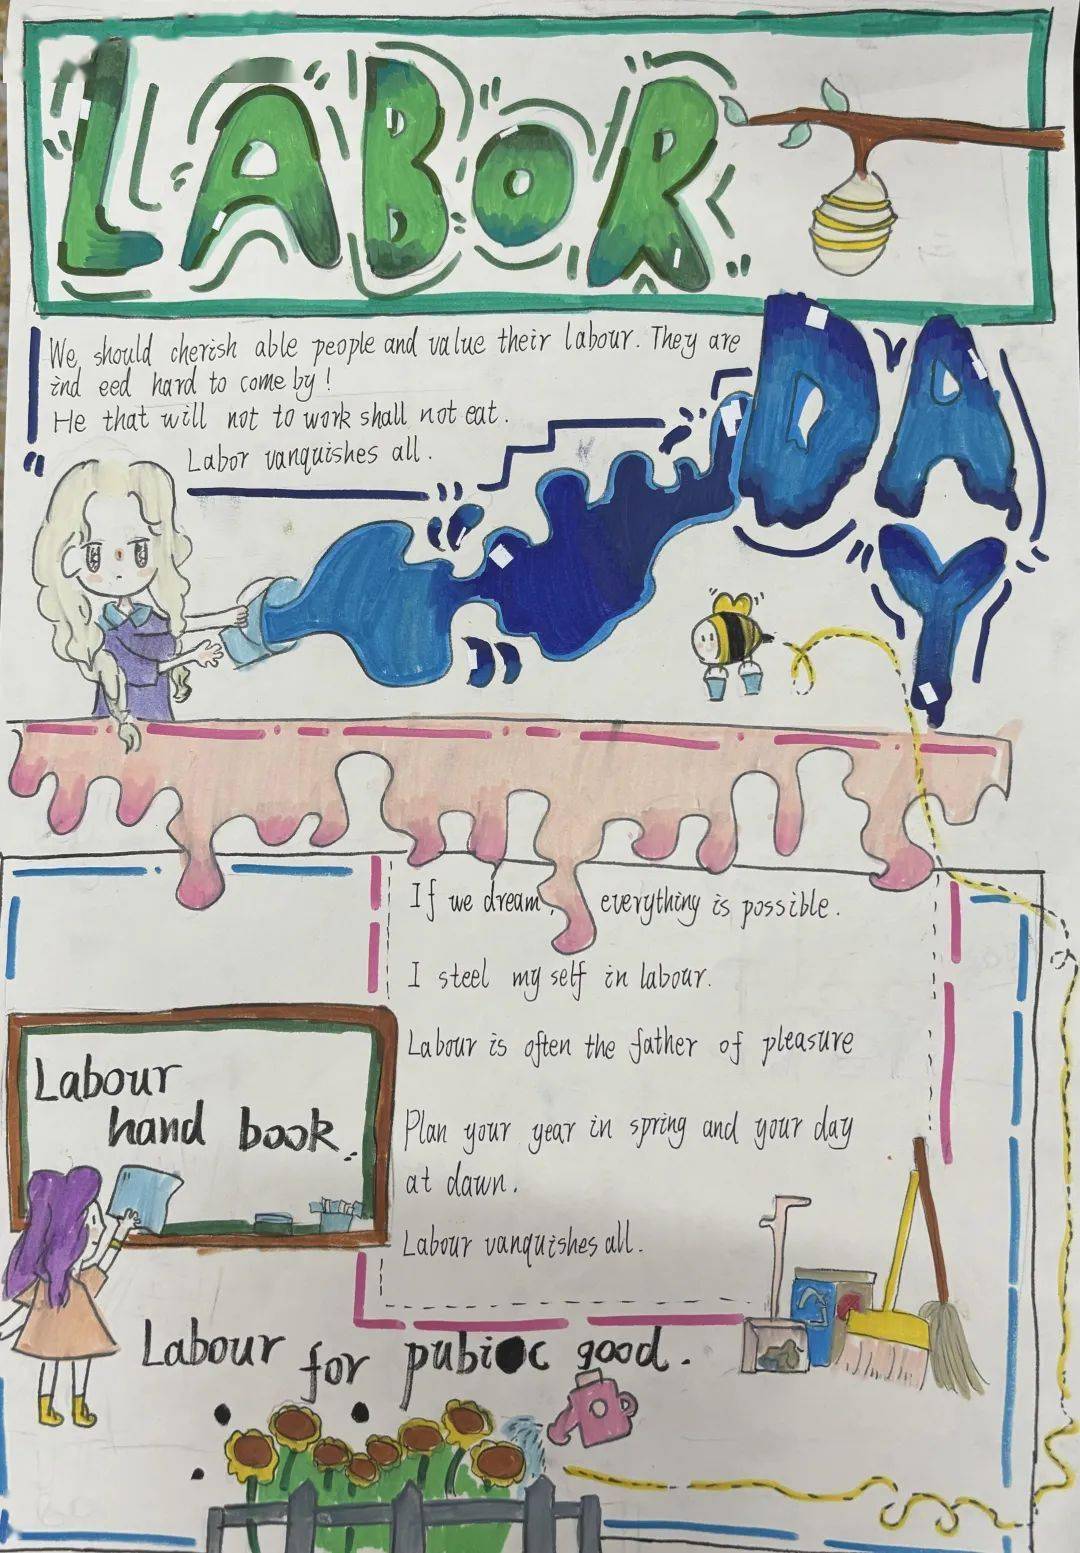 LABOR
DAY
We should cherish able people and value their labour. They are
ind eed hard to come by!
He that will not to work shall not eat.
Labor vanquishes all.
If we dream, everything is possible.
I steel my self in labour.
Labour is often the father of pleasure
Plan your year in spring and your day
at dawn.
Labour vanquishes all.
Labour
hand book
Labour for pubi●c good.